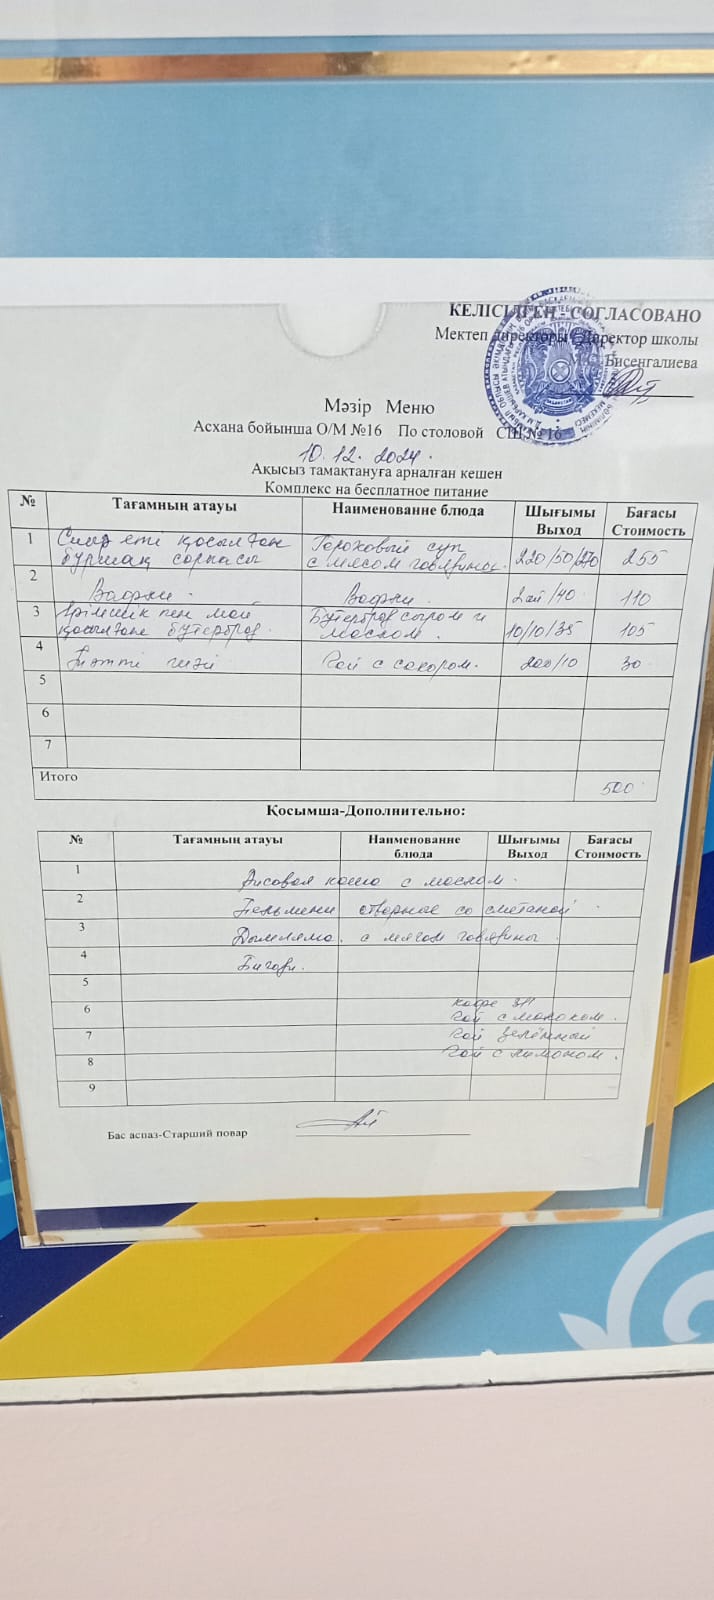 КЕЛІСІЛГЕН - СОГЛАСОВАНО
Мектеп директоры Директор школы
Бисенгалиева
Мәзір Меню
Асхана бойынша О/М №16 По столовой СШ № 16
10.12.2024.
Ақысыз тамақтануға арналған кешен
Комплекс на бесплатное питание
№ Тағамның атауы Наименование блюда Шығымы Выход Бағасы Стоимость
1 Сиыр еті қосылған бұршақ сорпасы Гороховый суп с мясом говядиной. 220/50/270 255
2 Вафли. Вафли. 2шт/40 110
3 Ірімшік пен май қосылған бутерброд. Бутерброд сыром и маслом. 10/10/35 105
4 Тәтті шәй Чай с сахаром. 200/10 30
5
6
7
Итого 500
Қосымша-Дополнительно:
№ Тағамның атауы Наименование блюда Шығымы Выход Бағасы Стоимость
1 Рисовая каша с маслом.
2 Пельмени отварные со сметаной.
3 Дымляма с мясом говядины.
4 Бигоди.
5
6 Кофе 3/1
Чай с молоком.
7 Чай зелённый
8 Чай с лимоном.
9
Бас аспаз-Старший повар